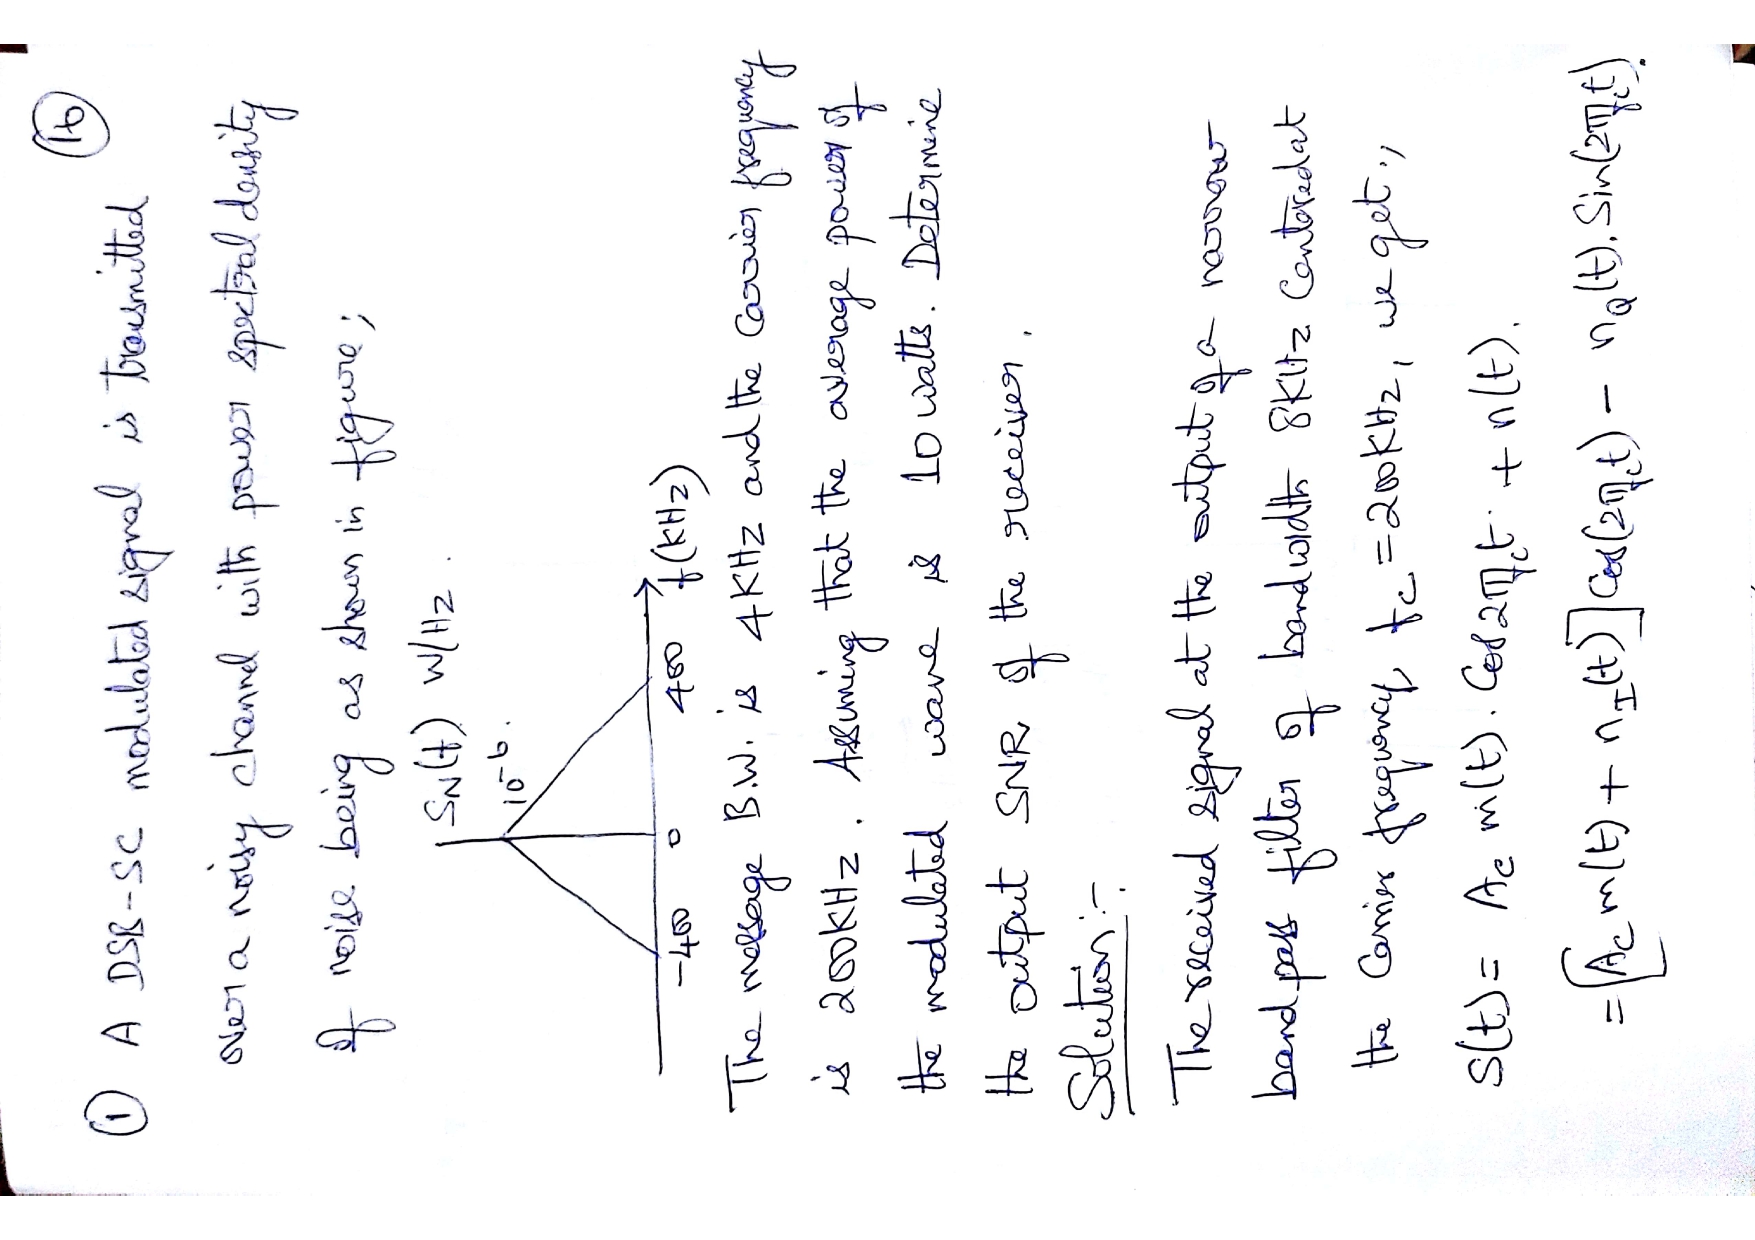 16
① A DSB-SC modulated signal is transmitted
over a noisy channel with power spectral density
of noise being as shown in figure;
SN(f) W/Hz.
10⁻⁶.
-400 0 400 f(KHz)
The message B.W. is 4 KHz and the Carrier frequency
is 200KHz. Assuming that the average power of
the modulated wave is 10 watts. Determine
the output SNR of the receiver.
Solution:-
The received signal at the output of a narrow
band pass filter of bandwidth 8KHz Centered at
the Carrier frequency, fc = 200KHz, we get;,
S(t) = Ac m(t). Cos 2πfct + n(t).
= [Ac m(t) + nI(t)] Cos(2πfct) - nQ(t). Sin(2πfct).